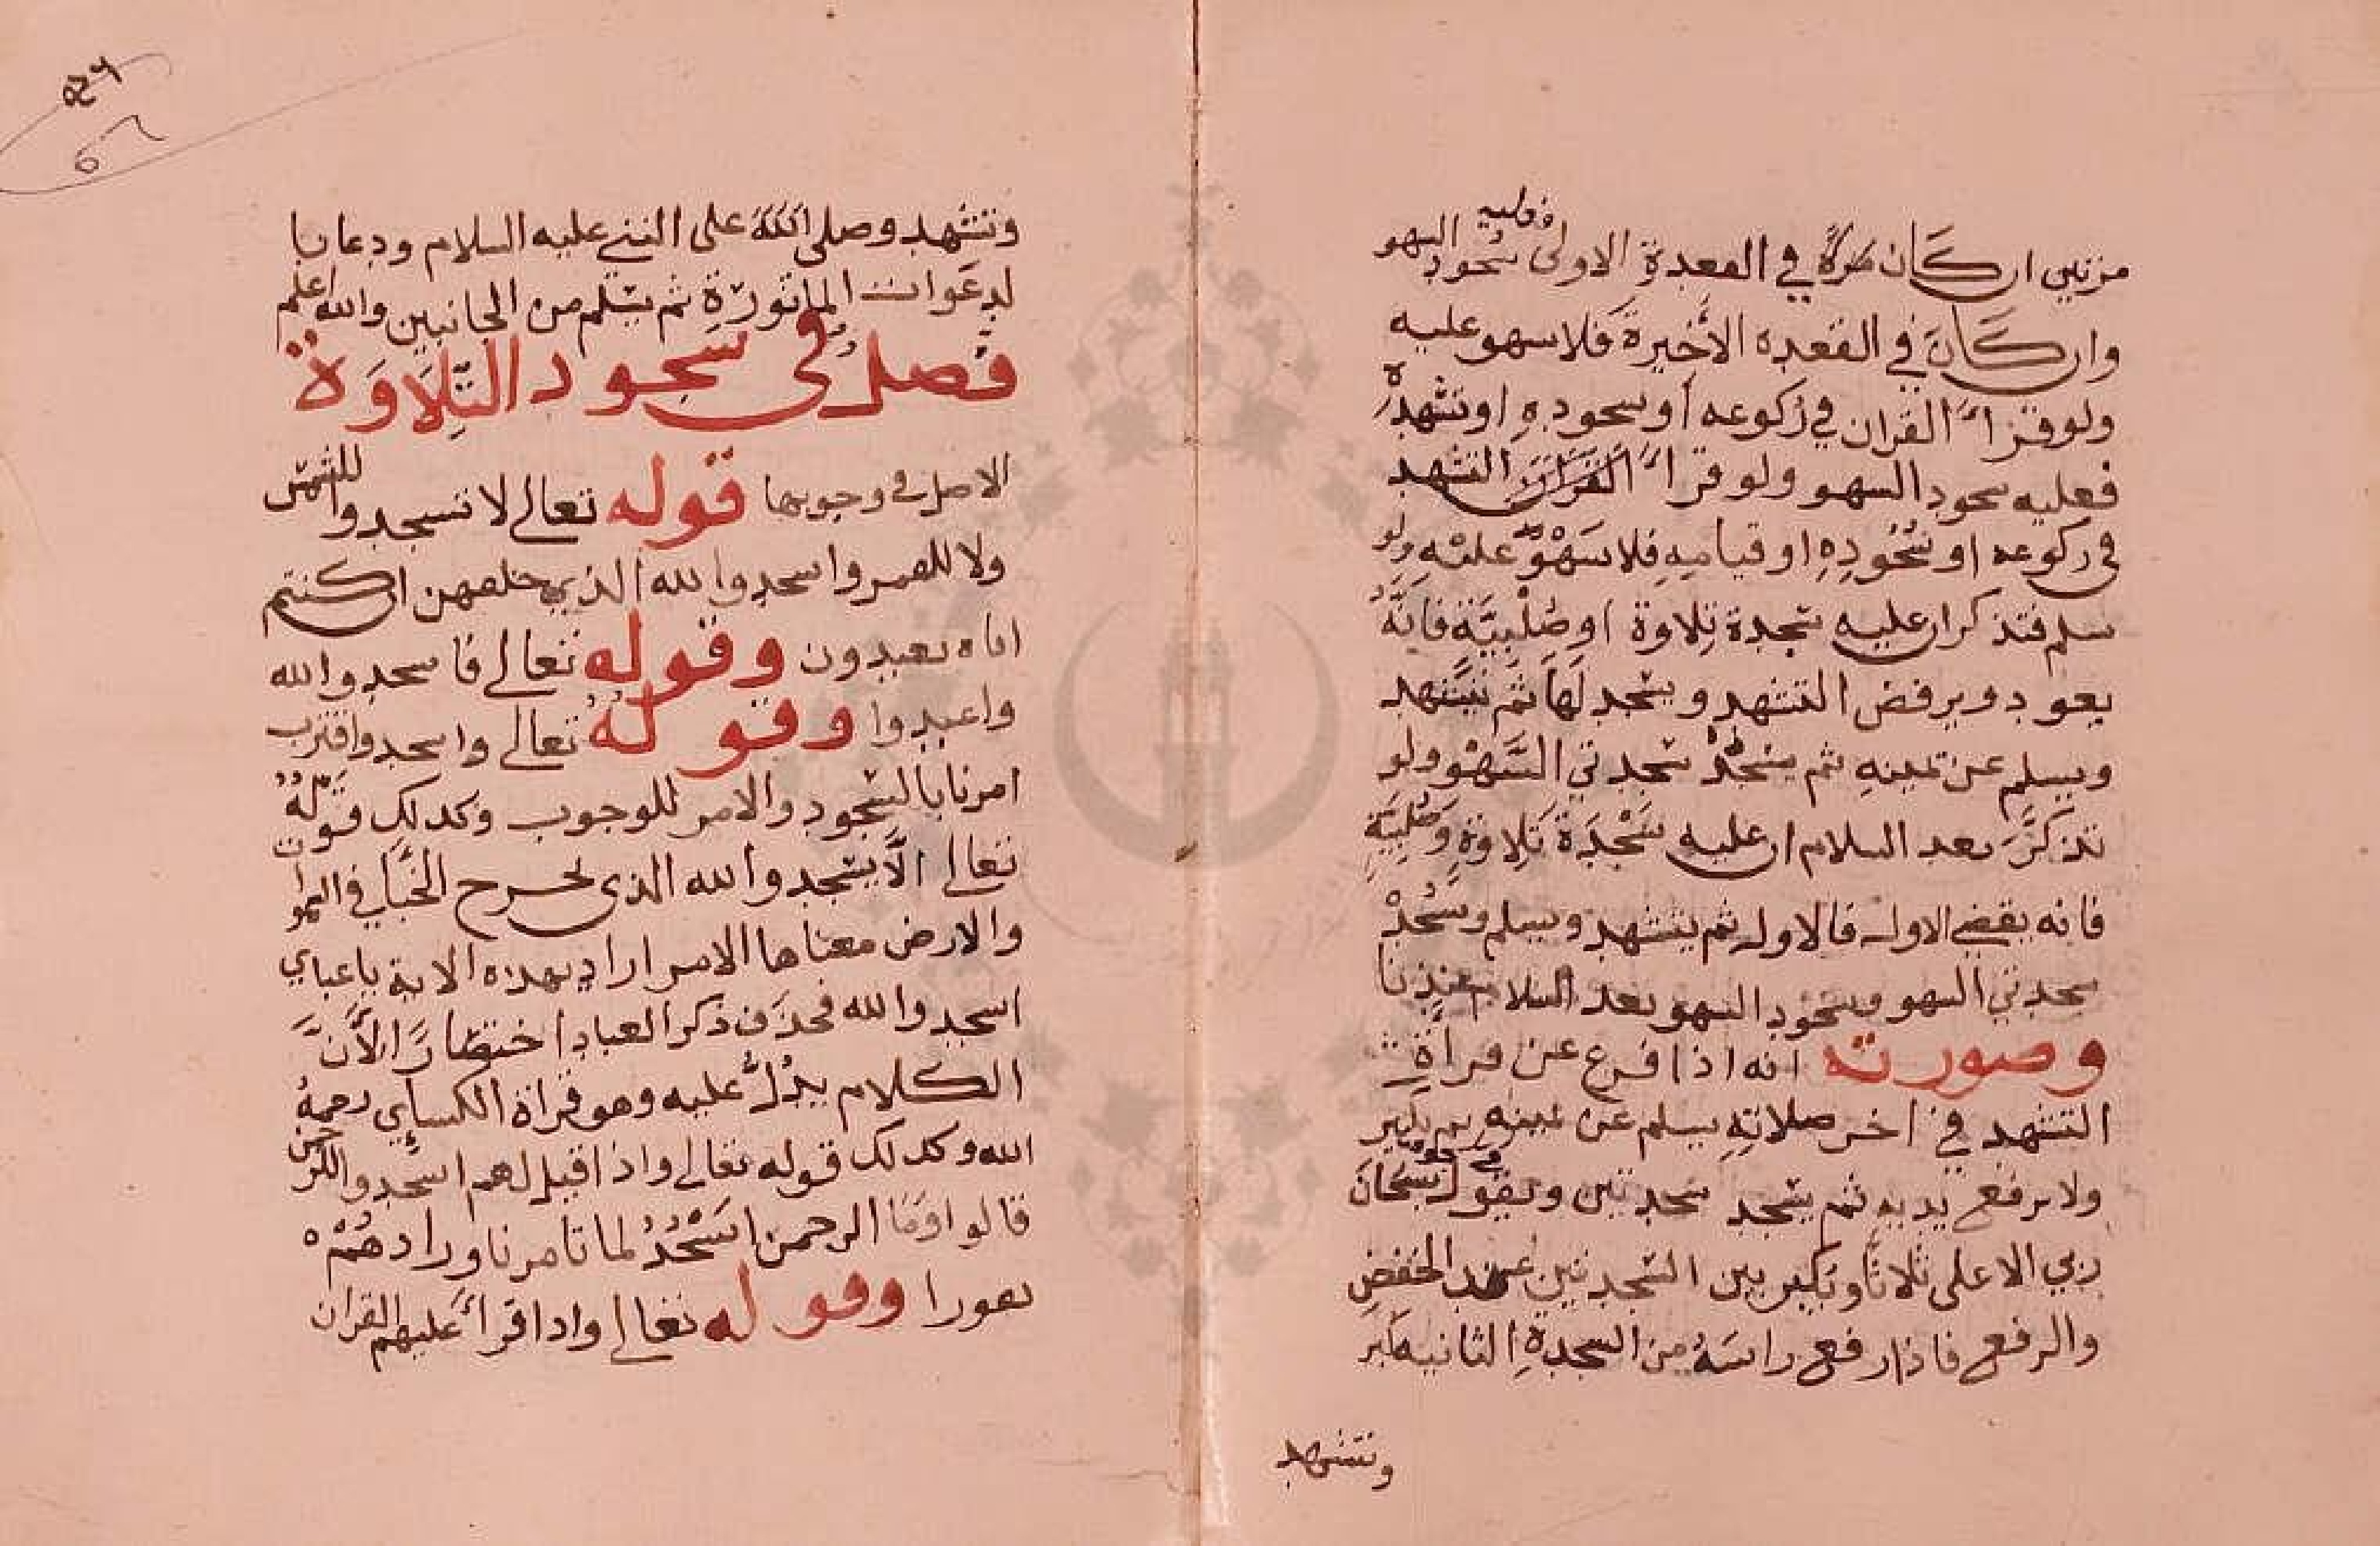 مرتين ان كان مرة في القعدة الاولى فعليه سجود السهو
وان كان في القعدة الأخيرة فلا سهو عليه
ولو قرأ القران في ركوعه أو سجوده او تشهده
فعليه سجود السهو ولو قرأ القران التشهد
في ركوعه او سُجُودِهِ او قيامِهِ فلا سَهْوَ عليه ولو
سلم فتذكر ان عليه سجدة تِلاوة او صُلْبِيَّة فَاِنَّهُ
يعود ويرفض التشهد ويسجد لَهَا ثُمَّ يتشهد
ويسلم عن يمينهِ ثم يسْجُدُ سجدتي السَّهْو ولو
تذكَّرَ بعد السلام ان عليه سَجْدَةَ تِلاوةٍ وَصُلْبِيَّةٍ
فانه يقضي الاول فالاول ثم يتشهد ويسلم وسَجُدْ
سجدتي السهو وسجود السهو بعد السلام عندنا
وصورته انه اذا فرع عن قرأة
التشهد في اخر صلاتِهِ يسلم عن يمينه ثم يكبر
ولا يرفع يديه ثم يسجد سجدتين ويقول سبحان
ربي الاعلى ثلاثًا ويكبر بين السجدتين عند الخفض
والرفع فاذا رفع راسَهُ من السجدةِ الثانيه كبر
وتشهد
وتشهد وصلى على النبي عليه السلام ودعا با
لدعوات الماثورة ثم يسلم من الجانبين والله اعلم
فصل في سجود التلاوة
الاصل في وجوبها قوله تعالى لا تسجدوا للشمس
ولا للقمر واسجدوا لله الذي خلقهن ان كنتم
اياه تعبدون وقوله تعالى فاسجدوا لله
واعبدوا وقوله تعالى واسجد واقترب
امرنا بالسجود والامر للوجوب وكذلك قوله
تعالى الاّ يسجدوا لله الذي يخرج الخبأ في السموات
والارض معناها الامر اراد بهذه الاية يا عبادي
اسجدوا لله فحذف ذكر العباد اختصارًا لاَنَّ
الكلام يدُلُّ عليه وهو قراة الكسأي رحمهُ
الله وكذلك قوله تعالى واذا قيل لهم اسجدوا للرحمن
قالوا وَمَا الرحمن اَنَسْجُدُ لما تامرنا وزادهُمْ ه
نفورا وقوله تعالى واذا قرأ عليهم القران